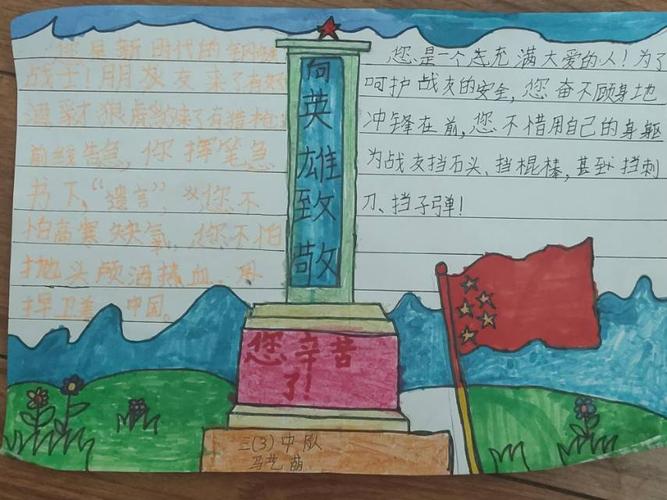 您是新时代的钢铁
战士！朋友来了有好
酒，豺狼来了有猎枪
前线告急，你挥笔急
书下“遗言”，您不
怕高寒缺氧，您不怕
抛头颅洒热血
捍卫着中国。
向英雄致敬
您是一个选充满大爱的人！为了
呵护战友的安全，您奋不顾身地
冲锋在前，您不惜用自己的身躯
为战友挡石头、挡棍棒，甚至挡刺
刀、挡子弹！
您辛苦
了！
三(3)中队
马艺萌